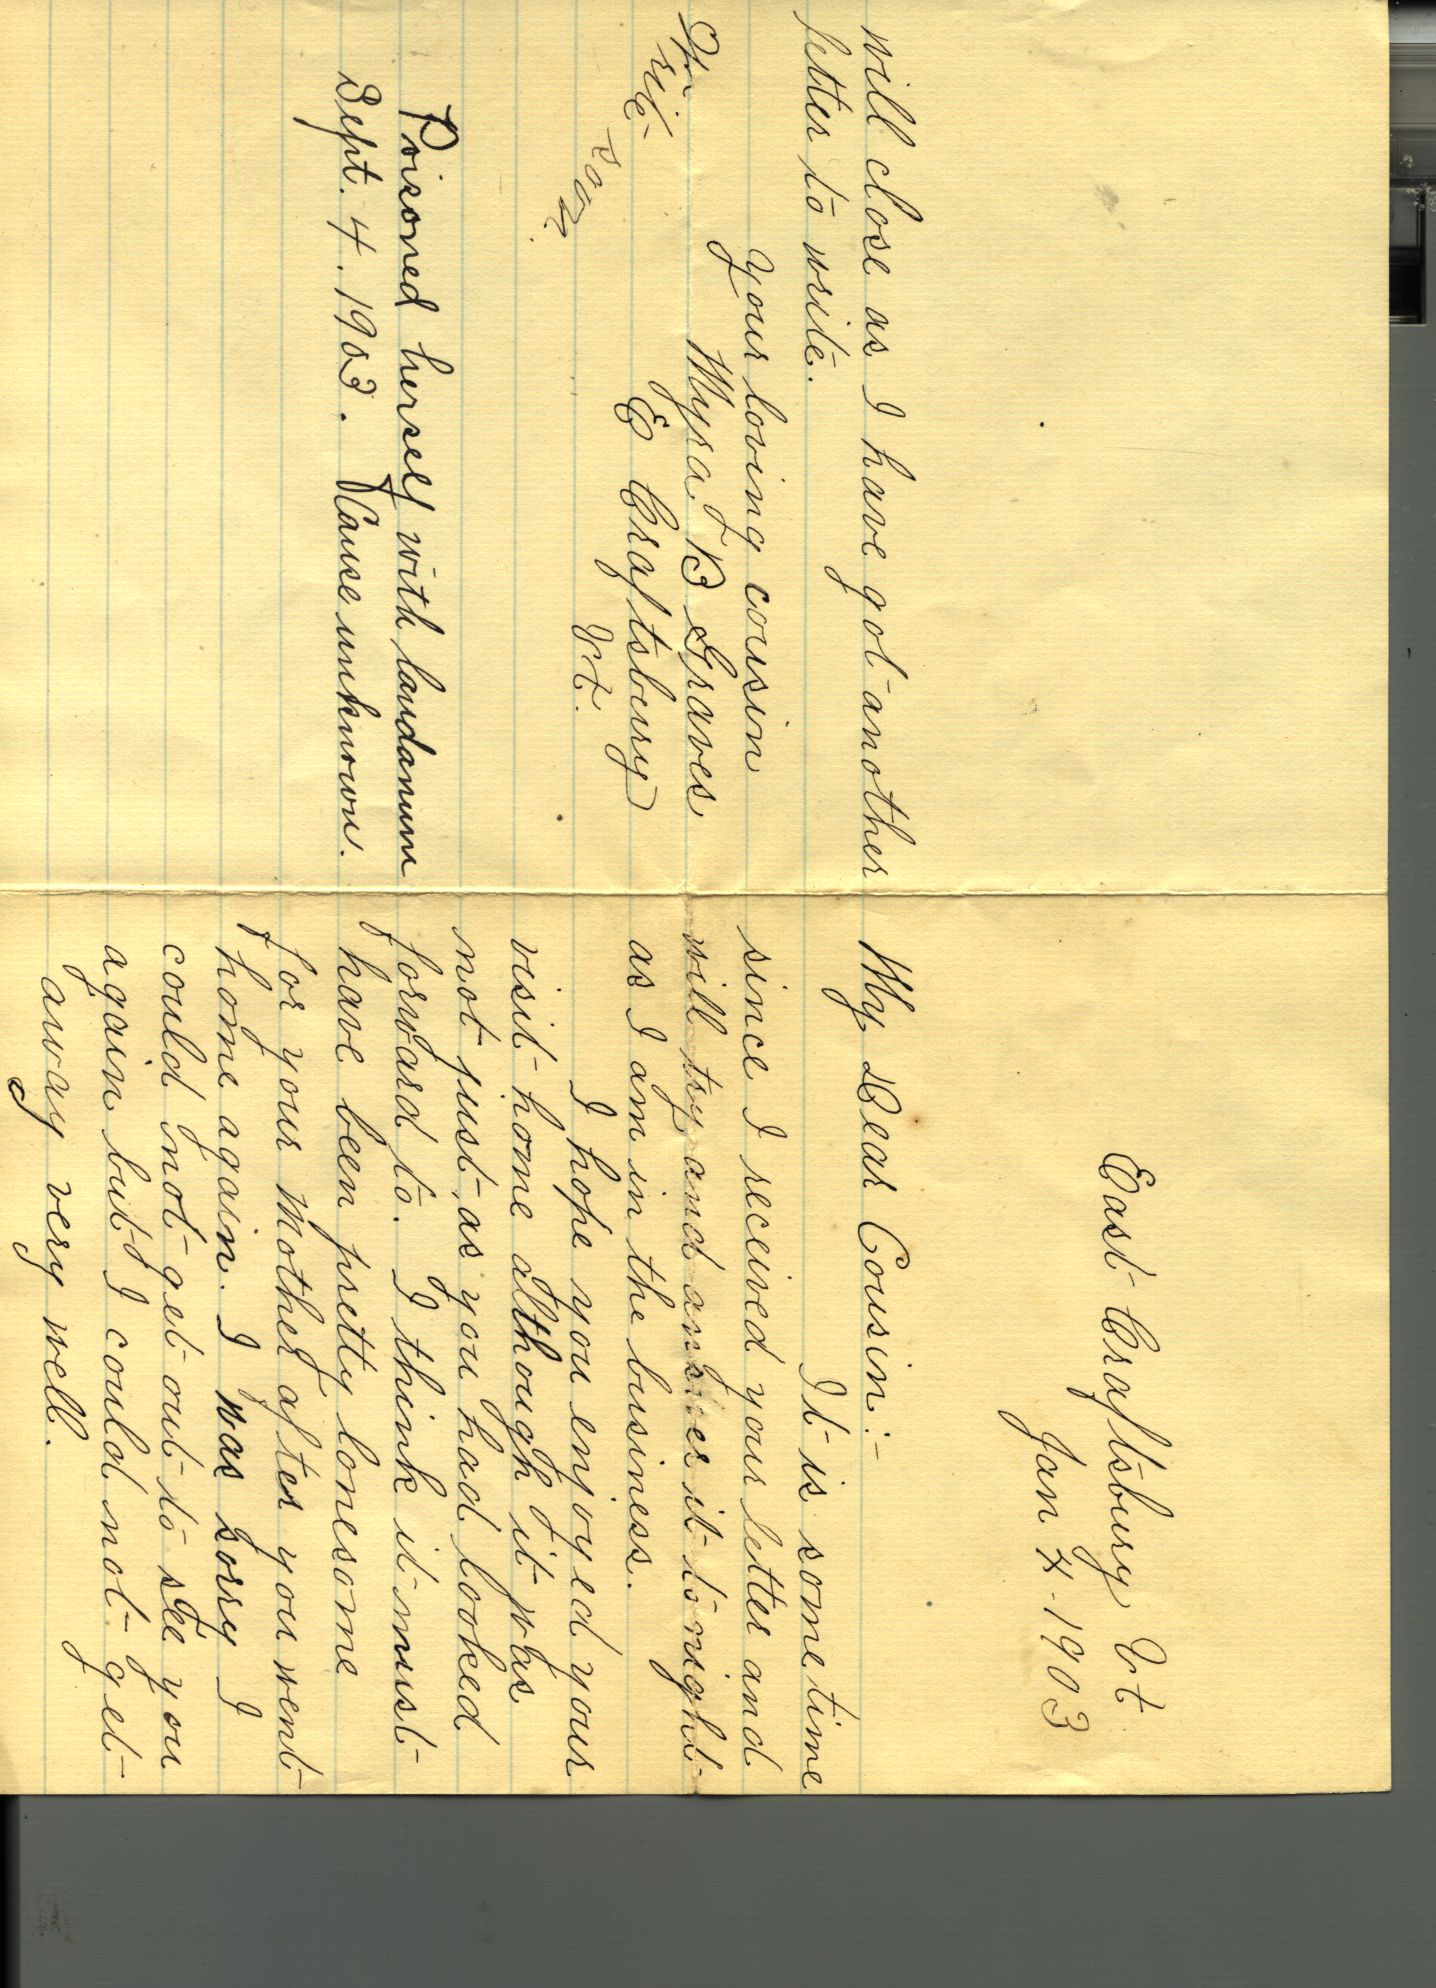 will close as I have got another
letter to write.
your loving cousin
Myra B Graves
E Craftsbury
Vt.
rite
soon.
Poisoned herself with laudanum
Sept. 4. 1903. Cause unknown.
East Craftsbury Vt
Jan 4 - 1903
My Dear Cousin:-
It is some time
since I received your letter and
will try and answer it to night
as I am in the business.
I hope you enjoyed your
visit home although it was
not just as you had looked
forward to. I think it must
have been pretty lonesome
for your Mother after you went
home again. I was sorry I
could not get out to see you
again but I could not get
away very well.